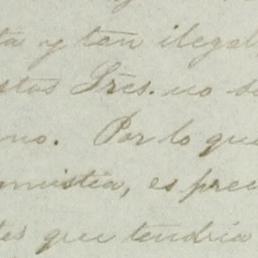 ta y tan ilegal
stos Sres. no s
no. Por lo que
mnistía, es prec
tes que tendría